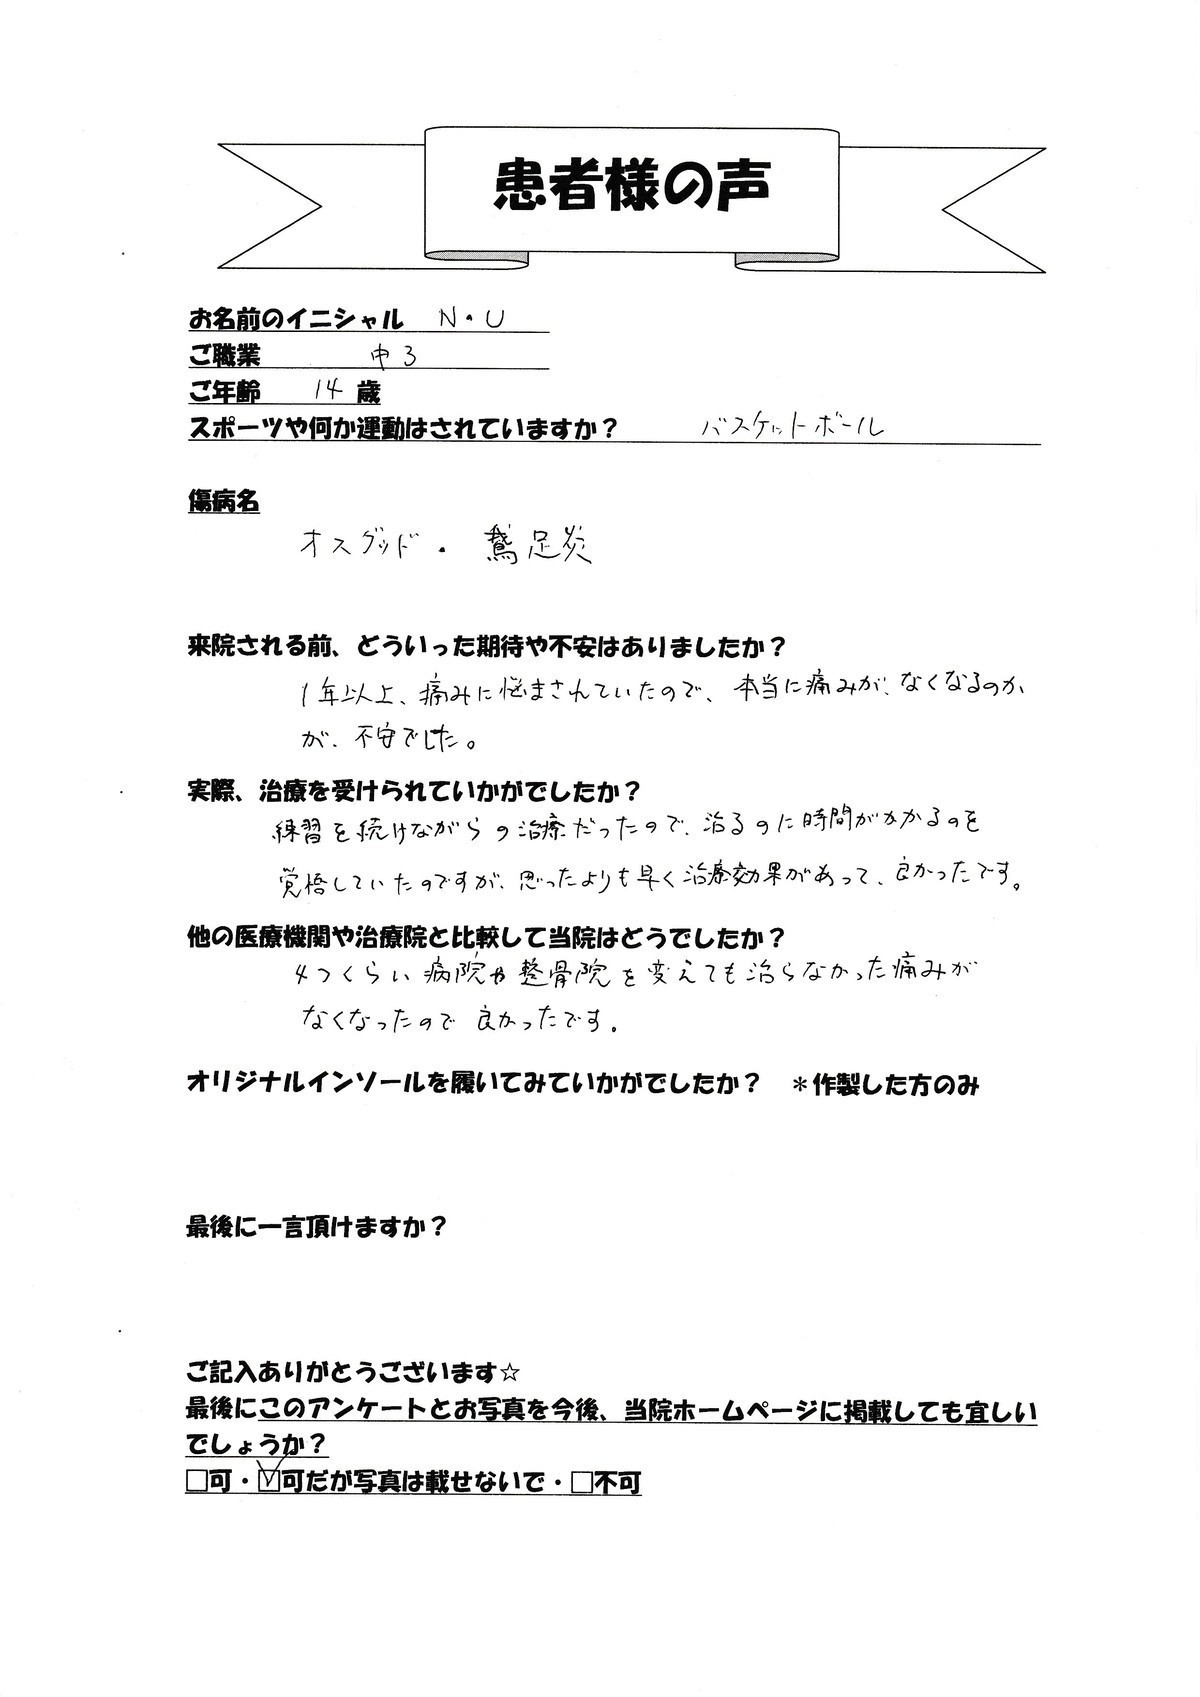 患者様の声
お名前のイニシャル N・U
ご職業 中3
ご年齢 14 歳
スポーツや何か運動はされていますか？ バスケットボール
傷病名
オスグッド・鵞足炎
来院される前、どういった期待や不安はありましたか？
1年以上、痛みに悩まされていたので、本当に痛みが、なくなるのか
が、不安でした。
実際、治療を受けられていかがでしたか？
練習を続けながらの治療だったので、治るのに時間がかかるのを
覚悟していたのですが、思ったよりも早く治療効果があって、良かったです。
他の医療機関や治療院と比較して当院はどうでしたか？
4つくらい病院や整骨院を変えても治らなかった痛みが
なくなったので良かったです。
オリジナルインソールを履いてみていかがでしたか？ ＊作製した方のみ
最後に一言頂けますか？
ご記入ありがとうございます☆
最後にこのアンケートとお写真を今後、当院ホームページに掲載しても宜しい
でしょうか？
□可・☑可だが写真は載せないで・□不可